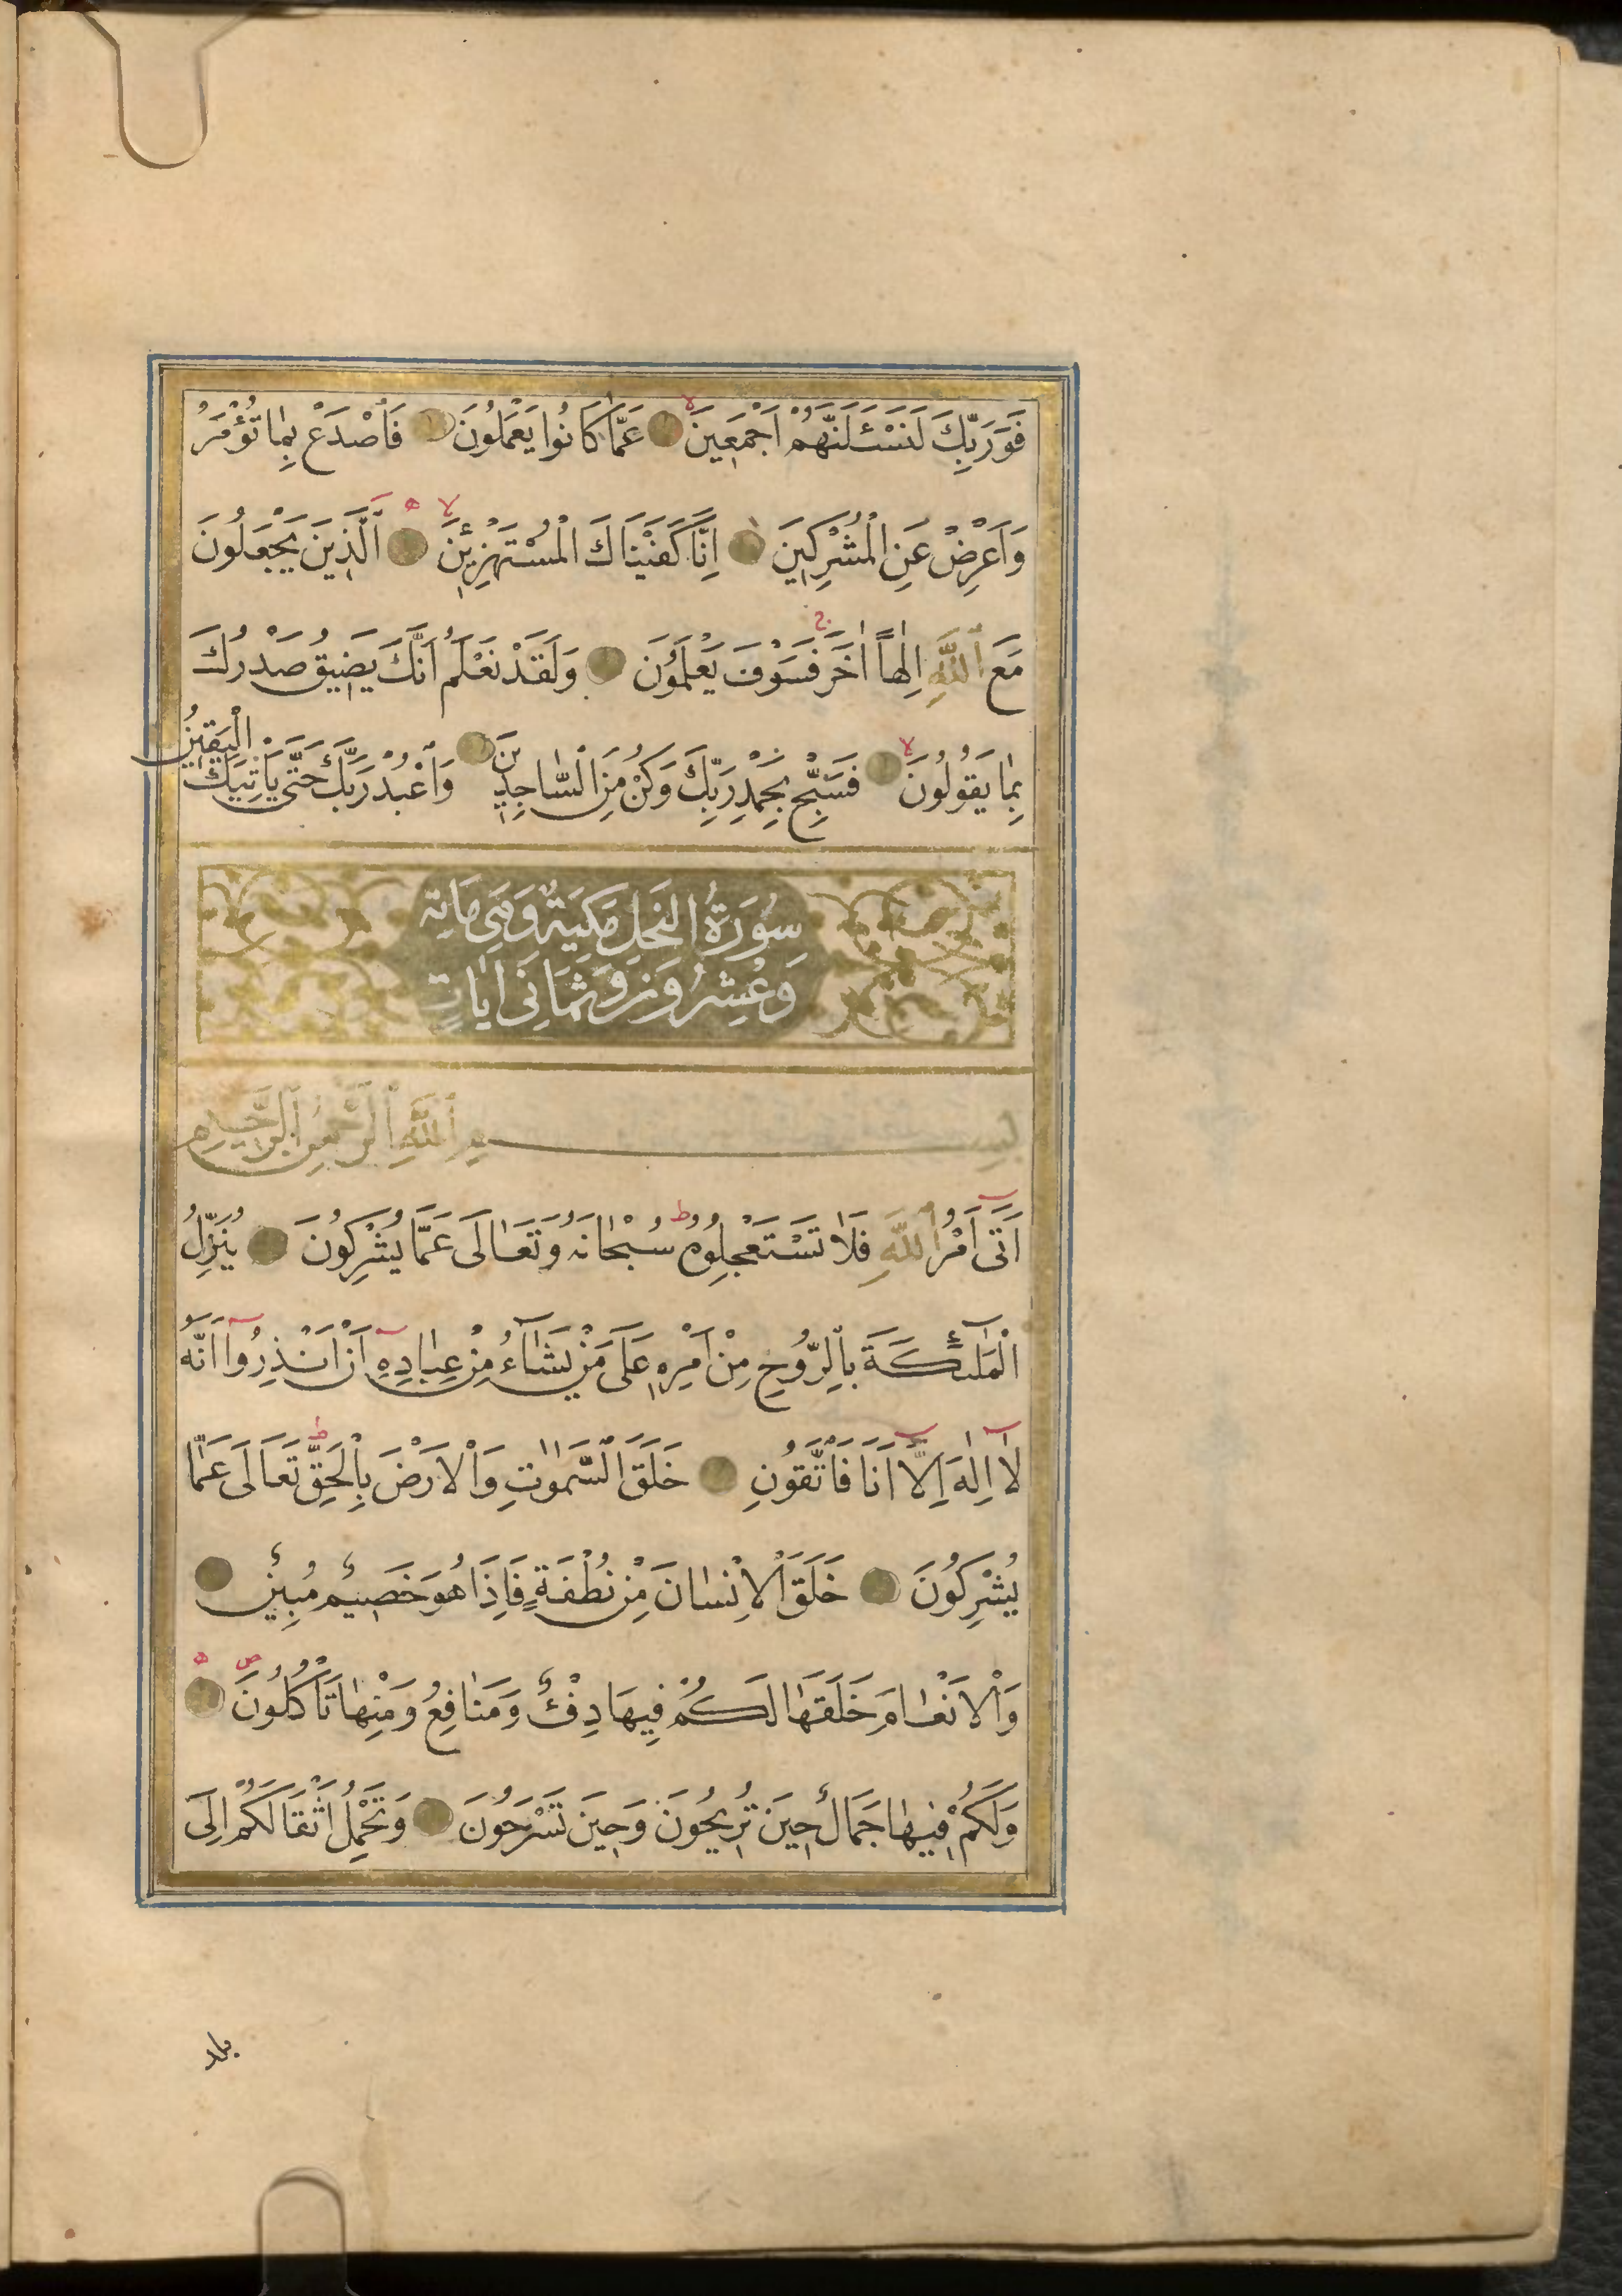 فَوَرَبِّكَ لَنَسْـَٔلَنَّهُمْ اَجْمَعِينَ لا عَمَّا كَانُوا يَعْمَلُونَ فَاصْدَعْ بِمَا تُؤْمَرُ
وَاَعْرِضْ عَنِ الْمُشْرِكِينَ اِنَّا كَفَيْنَاكَ الْمُسْتَهْزِئِينَ لا ه اَلَّذِينَ يَجْعَلُونَ
مَعَ اللّٰهِ اِلٰهاً اٰخَرَ ج فَسَوْفَ يَعْلَمُونَ وَلَقَدْ نَعْلَمُ اَنَّكَ يَضِيقُ صَدْرُكَ
بِمَا يَقُولُونَ لا فَسَبِّحْ بِحَمْدِ رَبِّكَ وَكُنْ مِنَ السَّاجِدِينَ وَاعْبُدْ رَبَّكَ حَتّٰى يَأْتِيَكَ الْيَقِينُ
سُورَةُ النَّحْلِ مَكِّيَةٌ وَهِيَ مَائة
وَعِشْرُونَ وَثَمَانِي اٰيَاتٍ
بِسْمِ اللّٰهِ الرَّحْمٰنِ الرَّحِيمِ
اَتٰى اَمْرُ اللّٰهِ فَلَا تَسْتَعْجِلُوهُ ط سُبْحَانَهُ وَتَعَالٰى عَمَّا يُشْرِكُونَ يُنَزِّلُ
الْمَلٰٓئِكَةَ بِالرُّوحِ مِنْ اَمْرِهِ عَلٰى مَنْ يَشَٓاءُ مِنْ عِبَادِهِ اَنْ اَنْذِرُٓوا اَنَّهُ
لَٓا اِلٰهَ اِلَّٓا اَنَا فَاتَّقُونِ خَلَقَ السَّمٰوٰتِ وَالْاَرْضَ بِالْحَقِّ ط تَعَالٰى عَمَّا
يُشْرِكُونَ خَلَقَ الْاِنْسَانَ مِنْ نُطْفَةٍ فَاِذَا هُوَ خَصِيمٌ مُبِينٌ
وَالْاَنْعَامَ خَلَقَهَا لَكُمْ فِيهَا دِفْءٌ وَمَنَافِعُ وَمِنْهَا تَأْكُلُونَ ص ه
وَلَكُمْ فِيهَا جَمَالٌ حِينَ تُرِيحُونَ وَحِينَ تَسْرَحُونَ وَتَحْمِلُ اَثْقَالَكُمْ اِلٰى
بلد